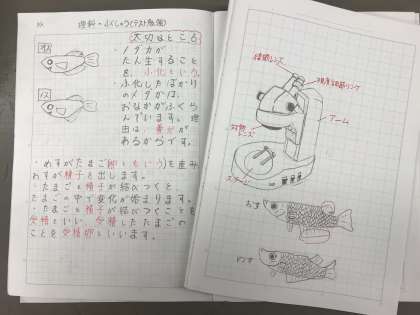 理科・ふくしゅう(テスト勉強)
大切なところ
オス
メス
・メダカが
たん生すること
を、ふ化という。
・ふ化したばかり
のメダカは、
おなかがふくら
んでいます。理
由は、養分が
あるからです。
・めすがたまご(卵ともいう)を産み、
おすが精子を出します。
・たまごと精子が結びつくと、
たまごの中で変化が始まります。
・たまごと精子が結びつくことを
受精といい、受精したたまごの
ことを受精卵といいます。
接眼レンズ
視度調節リング
アーム
対物レンズ
ステージ
おす
メス